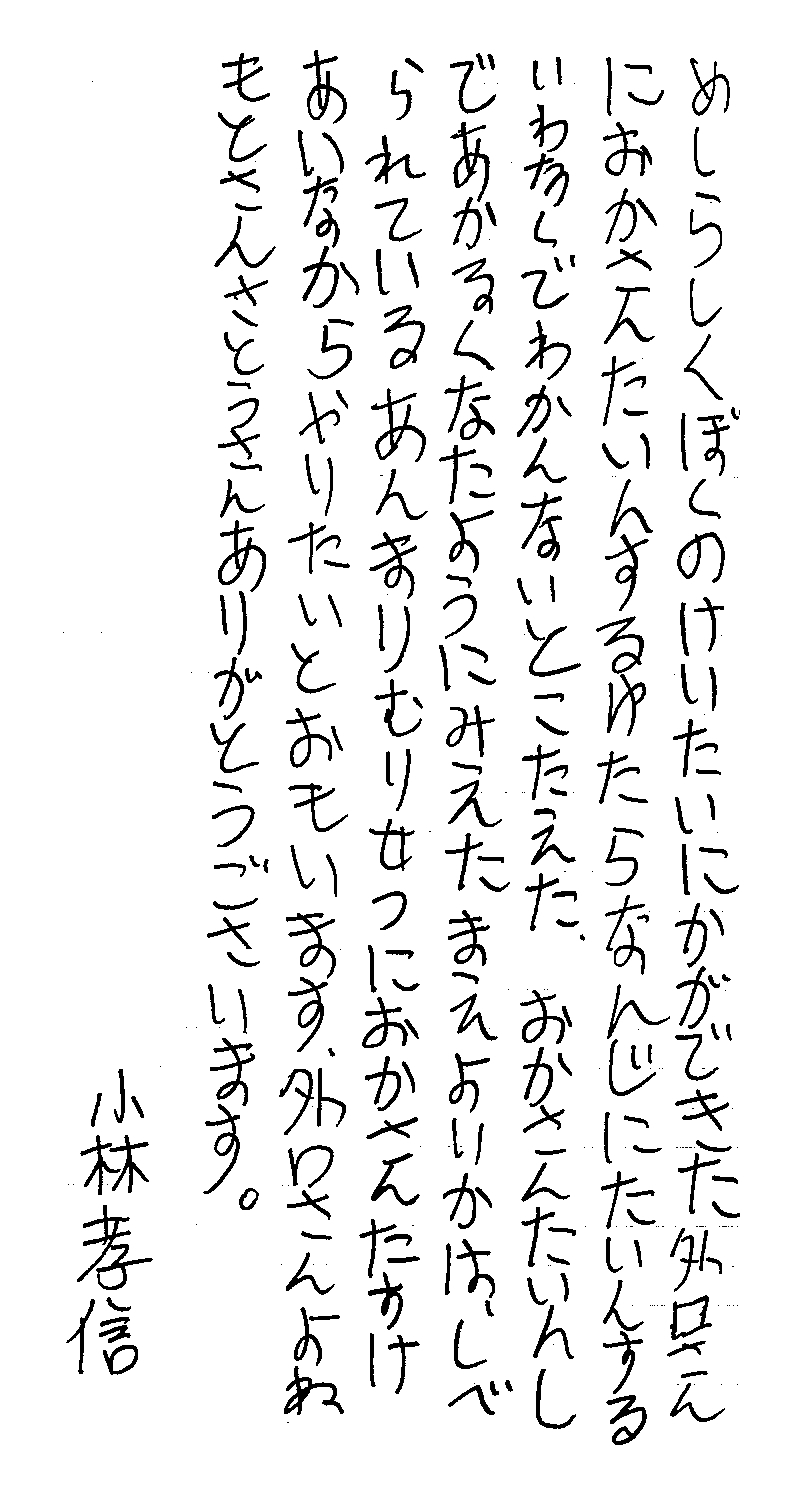 めしらしくぼくのけいたいにかができた外口さん
におかさんたいんするゆたらなんじにたいんする
いわなくでわかんないとこたえた、おかさんたいんし
であかるくなたようにみえたまえよりかは、しべ
られているあんまりむりせつにおかさんたすけ
あいなからやりたいとおもいます、外口さんよね
もとさんさとうさんありがとうごさいます。
小林孝信